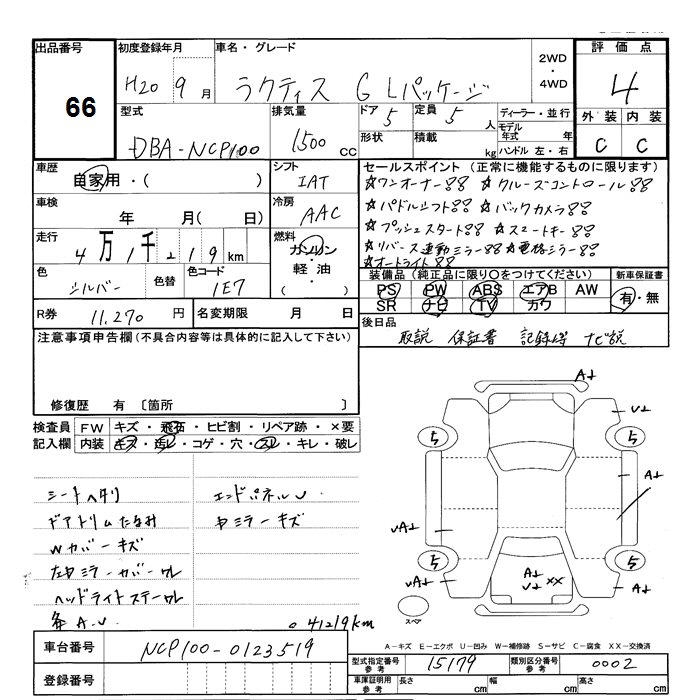 出品番号
66
初度登録年月
H20 9 月
車名・グレード
ラクティス G Lパッケージ
2WD
・
4WD
評 価 点
4
外 装 内 装
C C
型式
DBA-NCP100
排気量
1500 cc
ドア 5
定員 5 人
形状
積載 kg
ディーラー・並行
モデル年式 年
ハンドル 左・右
車歴
自家用・( )
シフト
IAT
車検
年 月( 日)
冷房
AAC
走行
4 万 1 千 2 1 9 km
燃料
ガソリン
軽 油
( ・ )
色
シルバー
色替
色コード
1E7
R券 11,270 円
名変期限 月 日
セールスポイント (正常に機能するものに限ります)
☆ワンオーナー!! ☆クルーズコントロール!!
☆パドルシフト!! ☆バックカメラ!!
☆プッシュスタート!! ☆スマートキー!!
☆リバース連動ミラー!! ☆電格ミラー!!
☆オートライト!!
装備品 (純正品に限り〇をつけてください)
PS PW ABS エアB AW
SR ナビ TV カワ
新車保証書
有・無
後日品
取説 保証書 記録簿 ナビ説
注意事項申告欄 (不具合内容等は具体的に記入して下さい)
修復歴 有 〔箇所 〕
検査員記入欄
FW キズ・飛石・ヒビ割・リペア跡・×要
内装 キズ・汚レ・コゲ・穴・スレ・キレ・破レ
シートヘタリ
ドアトリムたるみ
Wカバーキズ
左中ミラーカバーワレ
ヘッドライトステーワレ
各A.U
エンドパネルU
中ミラーキズ
41219km
A↓
U↓
5 5
A↓
UA↓
5 5
UA↓
A↓
U↓ XX
A↓
スペア
A-キズ E-エクボ U-凹み W-補修跡 S-サビ C-腐食 XX-交換済
車台番号
NCP100-0123519
登録番号
型式指定番号 参考 15179
類別区分番号 参考 0002
車庫証明用 参考
長さ cm 幅 cm 高さ cm